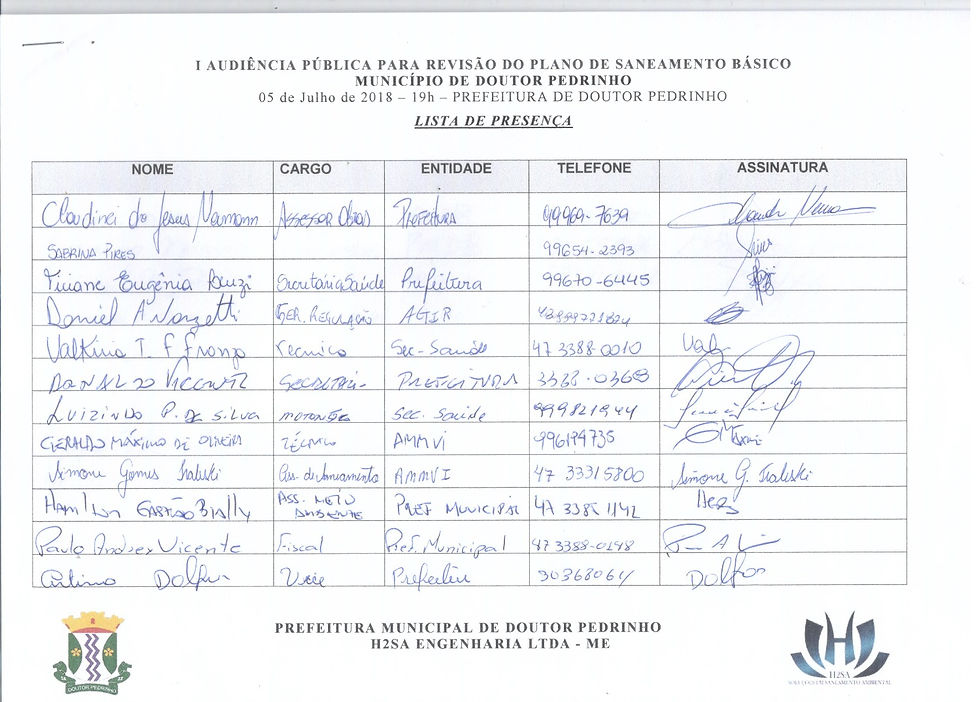 I AUDIÊNCIA PÚBLICA PARA REVISÃO DO PLANO DE SANEAMENTO BÁSICO
MUNICÍPIO DE DOUTOR PEDRINHO
05 de Julho de 2018 – 19h – PREFEITURA DE DOUTOR PEDRINHO
LISTA DE PRESENÇA
NOME CARGO ENTIDADE TELEFONE ASSINATURA
Claudinei de Jesus Neumann Assessor Obras PREFEITURA 99969-7639
SABRINA PIRES 99654-2393
Viviane Eugênia Secretária Saúde Prefeitura 99670-6445
Daniel A GER. REGULAÇÃO AGIR
Valkiria T. F Franzo Técnico Sec-Saúde 47 3388 0010
PREFEITURA 3388-0368
LUIZINDO P. DE SILVA Sec. Saúde 999821944
GERALDO MÁXIMO DE OLIVEIRA TÉCNICO AMMVI 996194735
Simone Gomes Traleski Ass. de Saneamento AMMVI 47 33315800 Simone G. Traleski
Hamilton ASS. MEIO AMBIENTE PREF MUNICIPAL
Paulo Andrey Vicente Fiscal Pref. Municipal 47 3388-0148
Dolfin Vice Prefeito
PREFEITURA MUNICIPAL DE DOUTOR PEDRINHO
H2SA ENGENHARIA LTDA - ME
DOUTOR PEDRINHO
H2SA
SOLUÇÕES EM SANEAMENTO AMBIENTAL